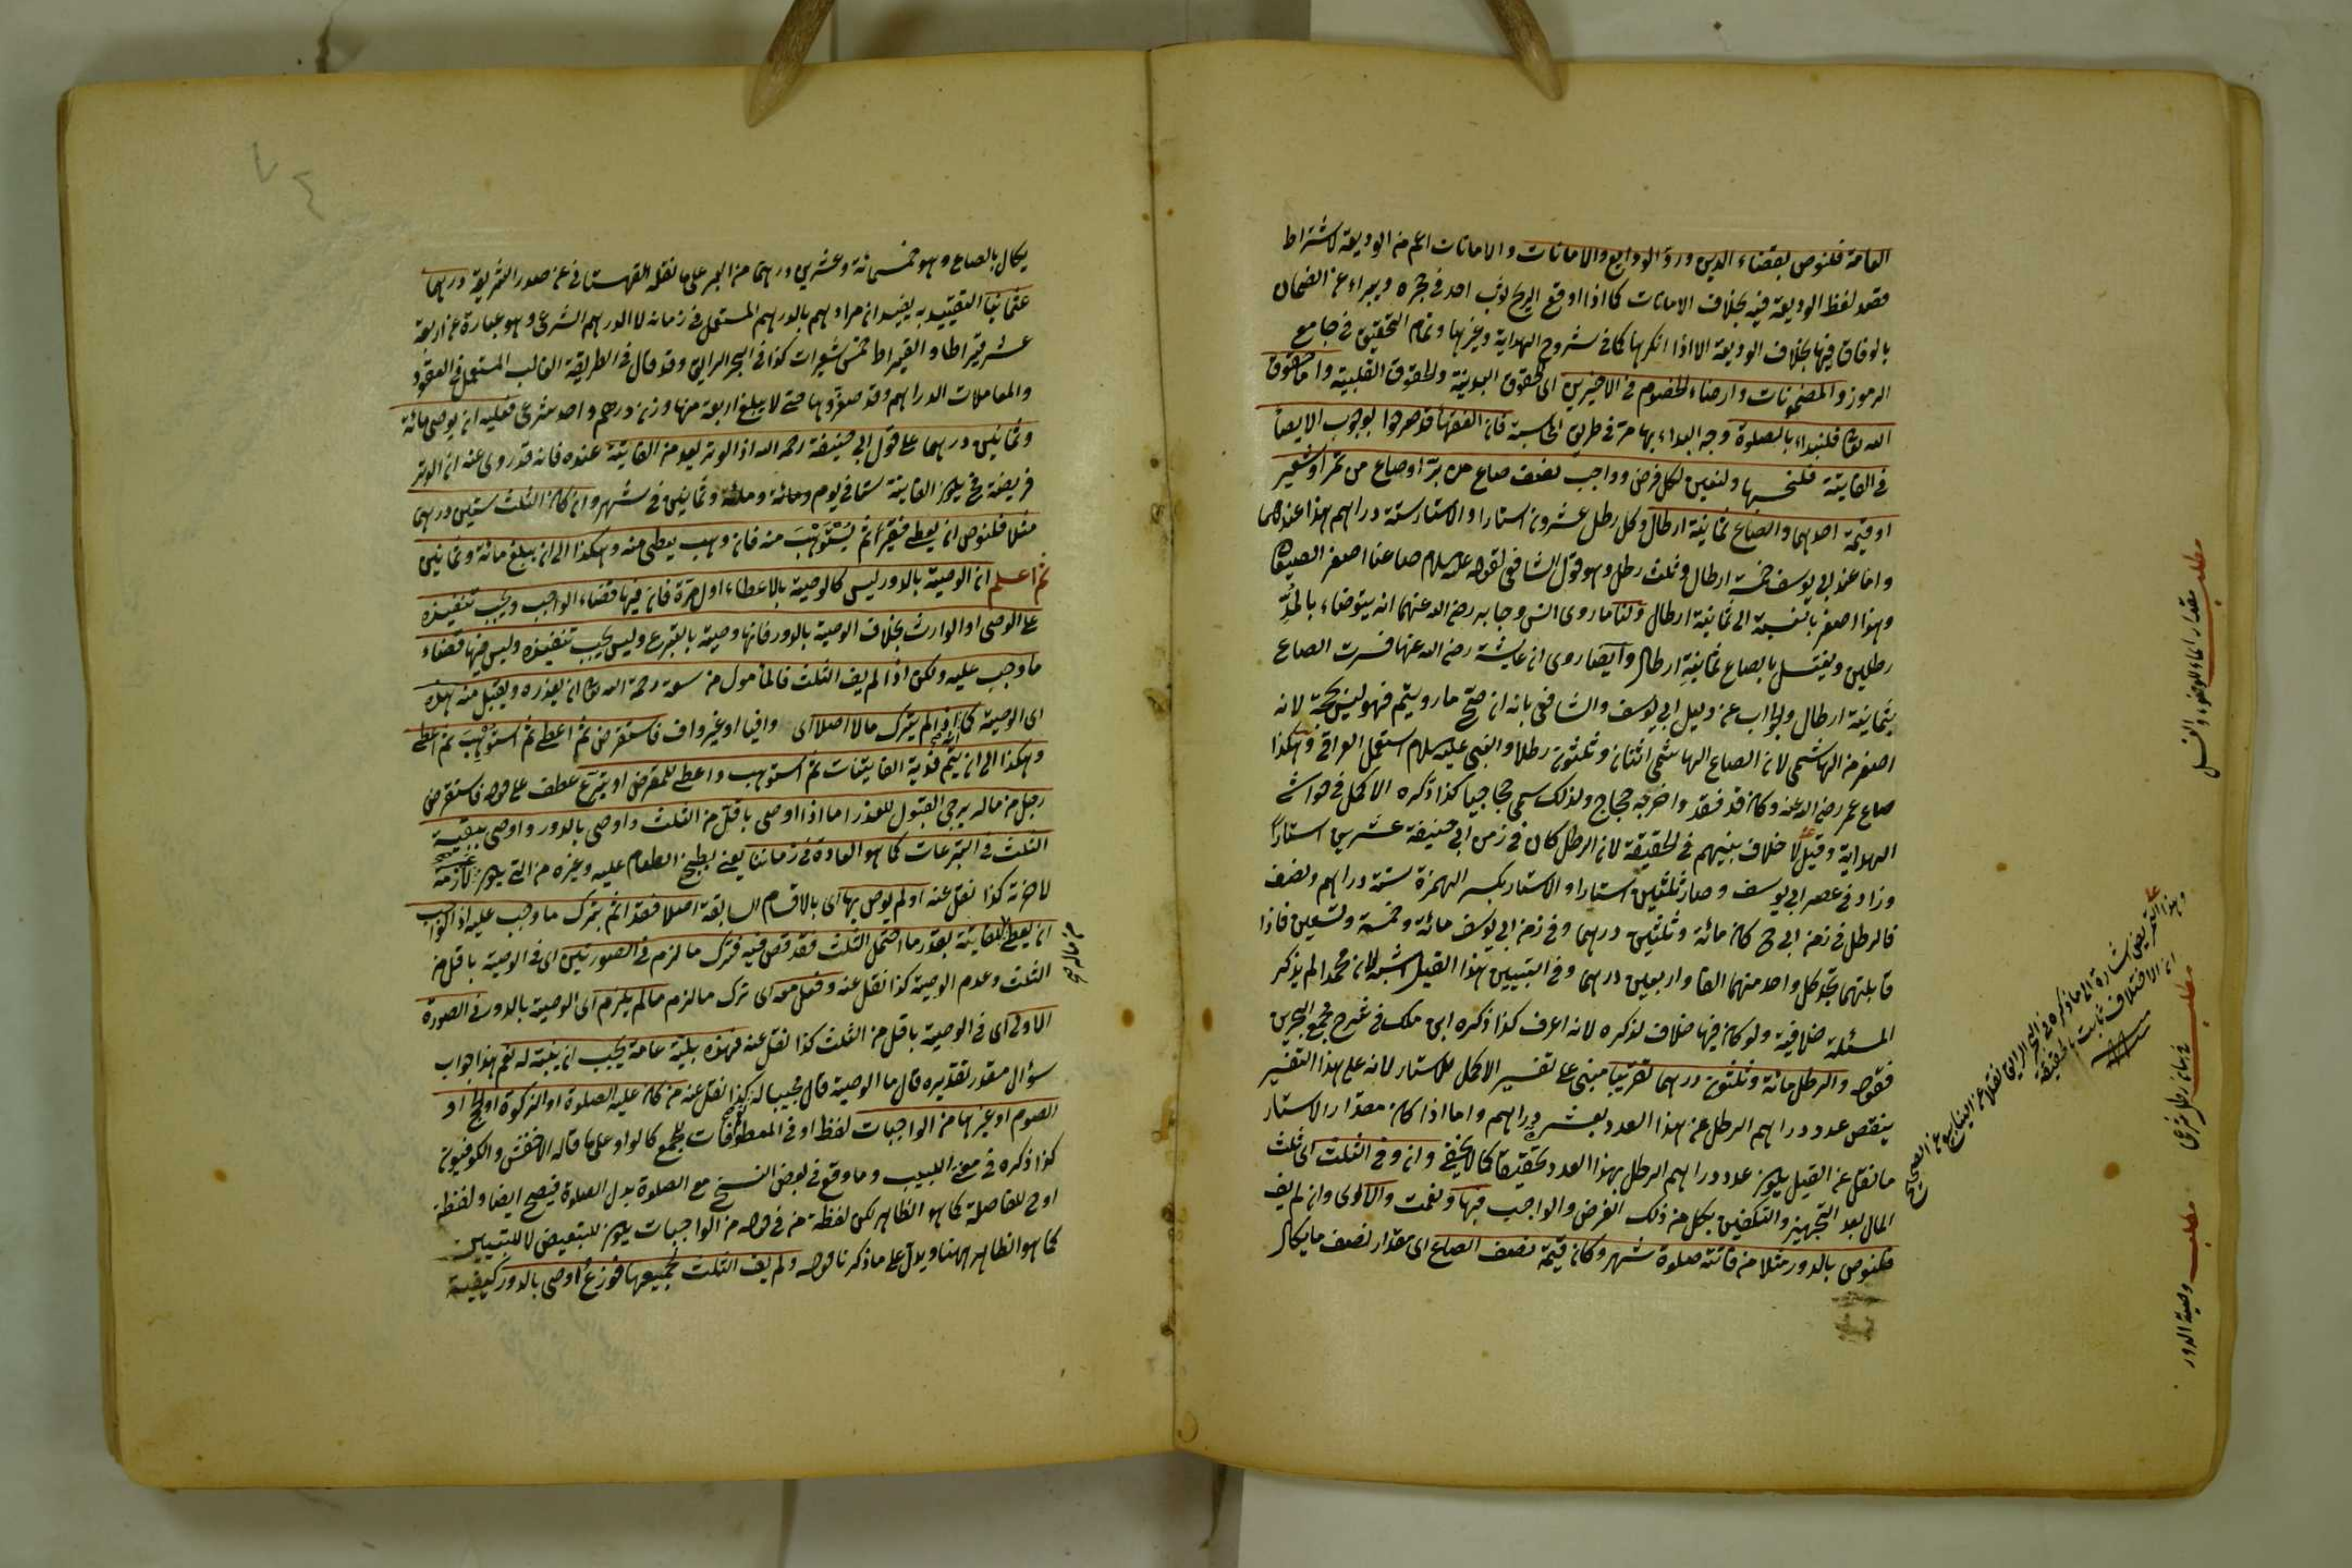 العامة فلنوص بقضاء الدين ورد الودايع والامانات والامانات اعم من الوديعة لاشتراط
قصد لفظ الوديعة فيه بخلاف الامانات كما اذا اوقع الريح ثوب احد في حجره ويبراء عن الضمان
بالوفاق فيها بخلاف الوديعة الا اذا انكرها كما في شروح الهداية وغيرها وتمام التحقيق في جامع
الرموز والمضمونات وارضاء الخصوم في الاخيرين اى الحقوق البدنية والحقوق القلبية واما حقوق
الله تعالى فلنبداء بالصلوة وجه البداء بها مر في طريق المحاسبة فان الفقهاء قد صرحوا بوجوب الايصاء
في الفايتة فلنحسبها ولنعين لكل فرض وواجب نصف صاع من بر او صاع من تمر او شعير
او قيمة احدهما والصاع ثمانية ارطال وكل رطل عشرون استارا والاستار ستة دراهم هذا عندهما
واما عند ابى يوسف خمسة ارطال وثلث رطل وهو قول الشافعى لقوله عليه السلام صاعنا اصغر الصيعان
وهذا اصغر بالنسبة الى ثمانية ارطال ولنا ما روى انس وجابر رضى الله عنهما انه يتوضاء بالمد
رطلين ويغتسل بالصاع ثمانية ارطال وايضا روى ان عايشة رضى الله عنها فسرت الصاع
بثمانية ارطال والجواب عن دليل ابى يوسف والشافعى بانه ان صح ما رويتم فهو ليس بحجة لانه
اصغر من الهاشمى لان الصاع الهاشمى اثنان وثلثون رطلا والنبى عليه السلام استعمل العراقى وهكذا
صاع عمر رضى الله عنه وكان قد فقد واخرجه حجاج ولذلك سمى حجاجيا كذا ذكره الاكمل في حواشى
الهداية وقيل لا خلاف بينهم في الحقيقة لان الرطل كان في زمن ابى حنيفة عشرين استارا
وزاد في عصر ابى يوسف وصار ثلثين استارا والاستار بكسر الهمزة ستة دراهم ونصف
فالرطل في زمن ابى ح كان مائة وثلثين درهما وفي زمن ابى يوسف مائة وخمسة وتسعين فاذا
قابلتهما تجد كل واحد منهما الفا واربعين درهما وفي التبيين هذا القيل اشبه لان محمدا لم يذكر
المسئلة خلافية ولو كان فيها خلاف لذكره لانه اعرف كذا ذكره ابن ملك في شرح مجمع البحرين
فقوله والرطل مائة وثلثون درهما تقريبا مبنى على تفسير الاكمل للاستار لانه على هذا التفسير
ينقص عدد دراهم الرطل عن هذا العدد بعشرة دراهم واما اذا كان مقدار الاستار
ما نقل عن القيل يكون عدد دراهم الرطل بهذا العدد تحقيقا كما لا يخفى وان وفى الثلث اى ثلث
المال بعد التجهيز والتكفين بكل من ذلك الفرض والواجب فبها ونعمت والاولى وان لم يف
فلنوص بالدور مثلا من فاتته صلوة شهر وكان قيمة نصف الصاع اى مقدار نصف ما يكال
مطلب مقدار الماء للوضوء والغسل
مطلب في بيان رطل شرعى
مطلب وصية الدور
وهذا التمريض اشارة الى ما ذكره في البحر الرايق نقلا عن الينابيع من الصحيح
ان الاختلاف ثابت بالحقيقة
٧٤
يكال بالصاع وهو خمسمائة وعشرين درهما من البر على ما نقله القهستانى عن صدر الشريعة درهما
عثمانيا التقييد به يفيد ان مرادهم بالدرهم المستعمل في زمانه لا الدرهم الشرعى وهو عبارة عن اربعة
عشر قيراطا والقيراط خمس شعيرات كذا في البحر الرايق وقد قال في الطريقة الغالب المستعمل في العقود
والمعاملات الدراهم وقد صغروها حتى لا يبلغ اربعة منها وزن درهم واحد شرعى فعليه ان يوصى مائة
وثمانين درهما على قول ابى حنيفة رحمه الله اذ الوتر يعد من الفايتة عنده فانه قد روى عنه ان الوتر
فريضة فح يكون الفايتة ستا في يوم ومائة وثمانين في شهر وان كان الثلث ستين درهما
مثلا فلنوص ان يعطى فقيرا ثم يستوهب منه فان وهب يعطى منه وهكذا الى ان يبلغ مائة وثمانين
ثم اعلم ان الوصية بالدور ليس كالوصية بالاعطاء اول مرة فان فيها قضاء الواجب ويجب تنفيذه
على الوصى او الوارث بخلاف الوصية بالدور فانها وصية بالتبرع وليس يجب تنفيذه وليس فيها قضاء
ما وجب عليه ولكن اذا لم يف الثلث فالمأمول من سعة رحمة الله تعالى ان يعذره ويقبل منه هذه
اى الوصية كما اذا لم يترك مالا اصلا اى وافيا او غير واف فاستقرض ثم اعطى ثم استوهب ثم اعطى
وهكذا الى ان يتم فدية الفايتات ثم استوهب واعطى للمقرض او يتبرع عطف على قوله فاستقرض
رجل من ماله يرجى القبول للعذر اما اذا اوصى باقل من الثلث واوصى بالدور واوصى ببقية
الثلث في التبرعات كما هو العادة في زماننا يعنى بطبخ الطعام عليه وغيره من التى يكون لازمة
لاخرته كذا نقل عنه او لم يوص بها اى بالاقسام السابقة اصلا فقد اثم بترك ما وجب عليه اذ الواجب
ان يعطى للفايتة بقدر ما احتمل الثلث فقد قص فيه فترك ما لزم في الصورتين اى في الوصية باقل من
من ماله صح
الثلث وعدم الوصية كذا نقل عنه وفعل معه اى ترك ما لزم ما لم يلزم اى الوصية بالدور في الصورة
الاولى اى في الوصية باقل من الثلث كذا نقل عنه فهذه بلية عامة يجب ان يتنبه له ثم هذا جواب
سؤال مقدر تقديره قال ما الوصية قال مجيبا له كذا نقل عنه من كان عليه الصلوة او الزكوة او الحج او
الصوم او غيرها من الواجبات لفظ او في المعطوفات للجمع كالواو على ما قاله الاخفش والكوفيون
كذا ذكره في مغنى اللبيب وما وقع في بعض النسخ مع الصلوة بدل الصلوة فيصح ايضا ولفظة
اوح للفاصلة كما هو الظاهر لكن لفظة من في قوله من الواجبات يكون للتبعيض لا للتبيين
كما هو الظاهر ههنا ويدل على ما ذكرنا قوله ولم يف الثلث بجميعها فوزع اوصى بالدور كيفية